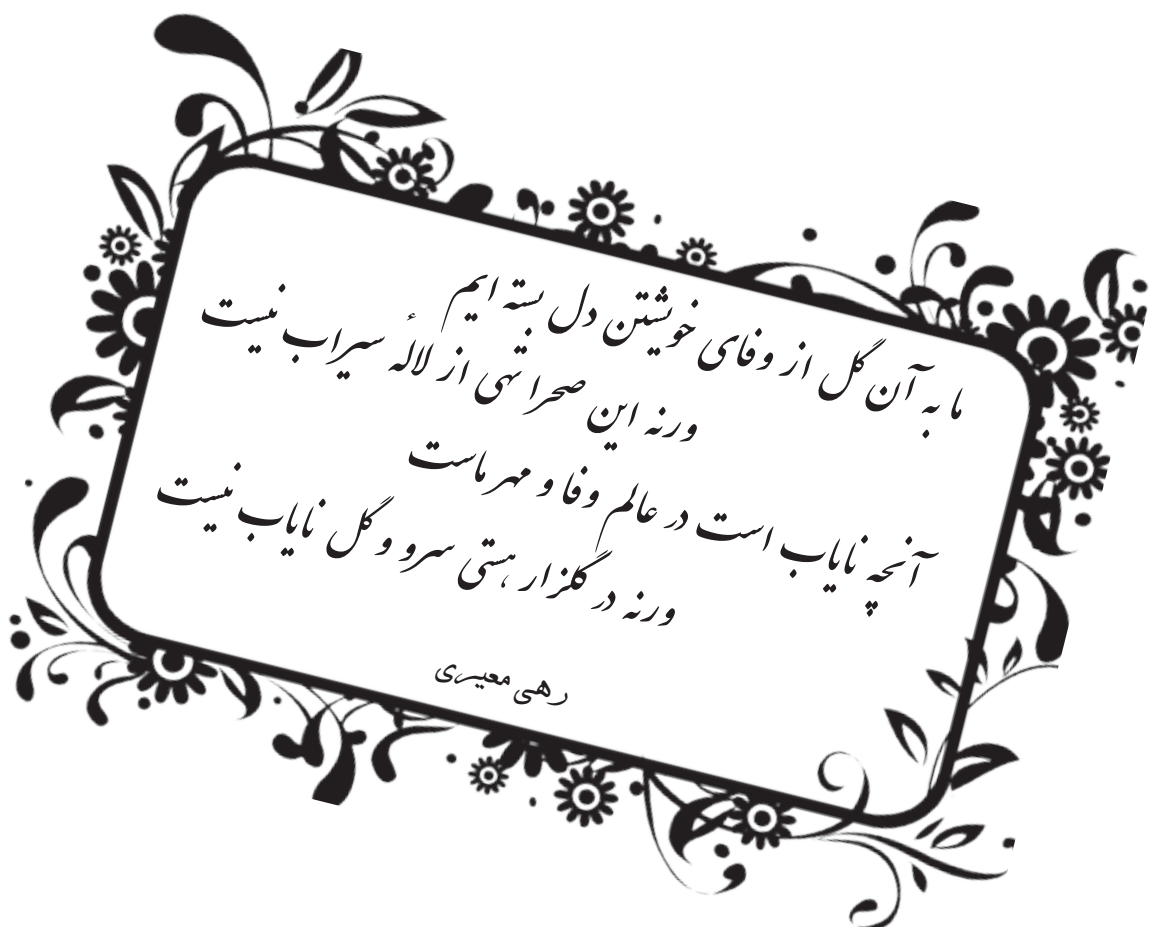 ما به آن گل از وفای خویشتن دل بسته ایم
ورنه این صحرا تهی از لالهٔ سیراب نیست
آنچه نایاب است در عالم وفا و مهر ماست
ورنه در گلزار هستی سرو و گل نایاب نیست
رهی معیری